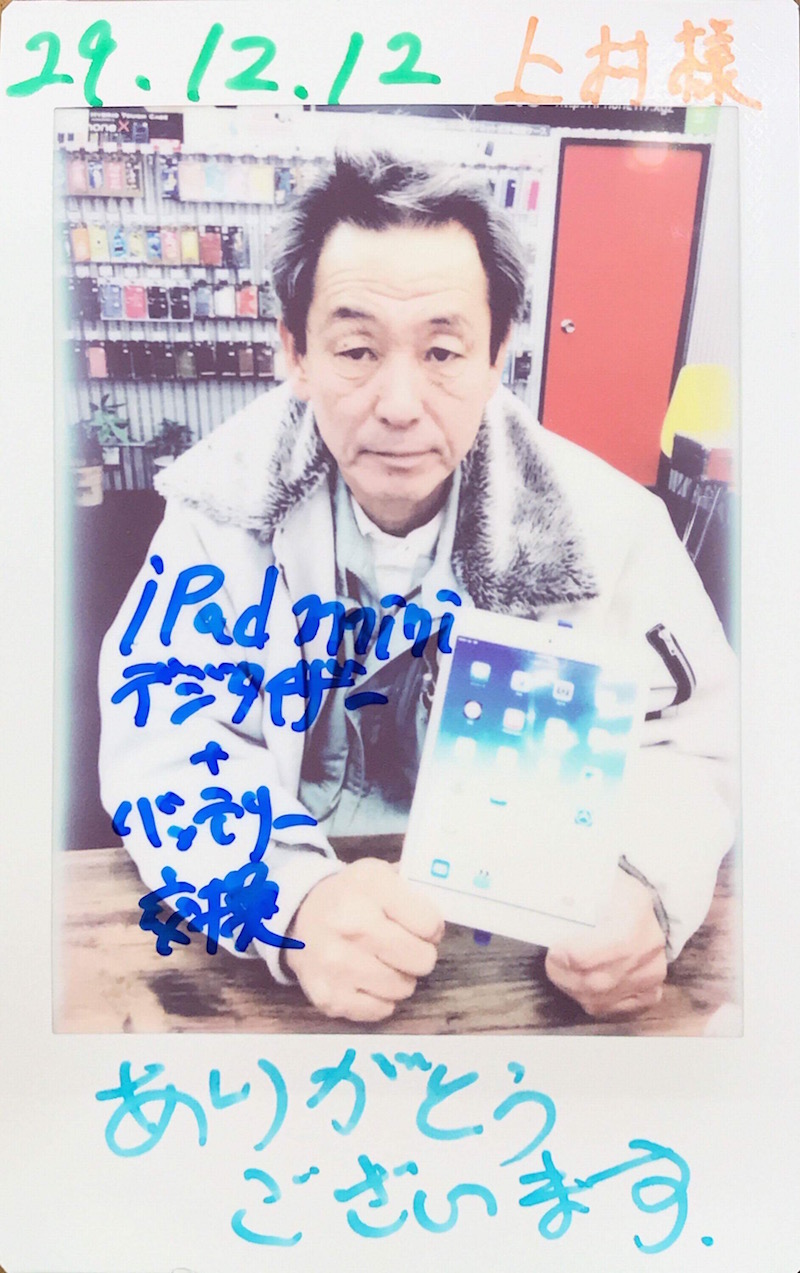 29.12.12 上村様
iPad mini
デジタイザー
+
バッテリー
交換
ありがとう
ございます.